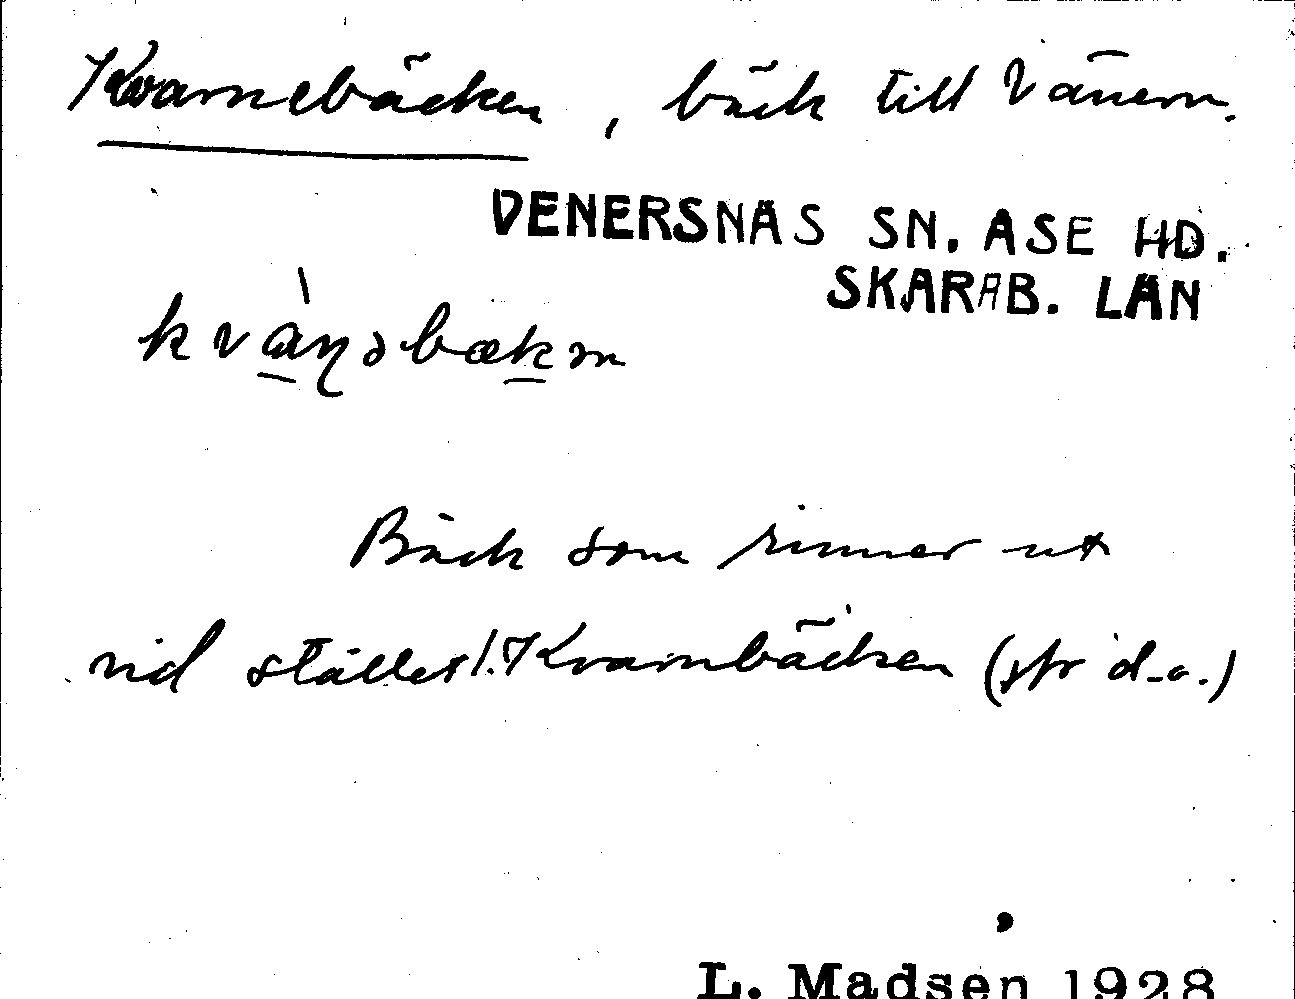 Kvarnebäcken, bäck till Vänern.
VENERSNÄS SN. ÅSE HD.
SKARAB. LÄN
kvàṇəbækm
Bäck som rinner ut
vid stället 1.7 Kvarnbäcken (jfr d.o.)
L. Madsen 1928